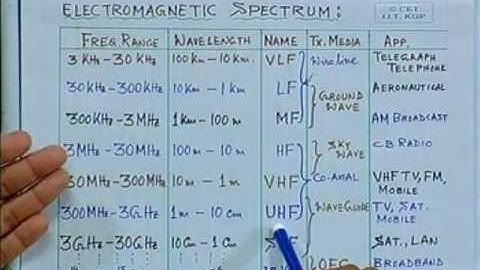 ELECTROMAGNETIC SPECTRUM:
© CET
I.I.T. KGP
FREQ. RANGE WAVELENGTH NAME TX. MEDIA APP.
3 KHz - 30 KHz 100 Km - 10 Km. VLF Wireline TELEGRAPH TELEPHONE
30 KHz - 300 KHz 10 Km - 1 Km LF GROUND WAVE AERONAUTICAL
300 KHz - 3 MHz 1 Km - 100 m MF AM BROADCAST
3 MHz - 30 MHz 100 m - 10 m HF SKY WAVE CB RADIO
30 MHz - 300 MHz 10 m - 1 m VHF CO-AXIAL VHF TV, FM, MOBILE
300 MHz - 3 GHz 1 m - 10 Cm UHF WAVEGUIDE TV, SAT. MOBILE
3 GHz - 30 GHz 10 Cm - 1 Cm SAT., LAN
OFC BROADBAND